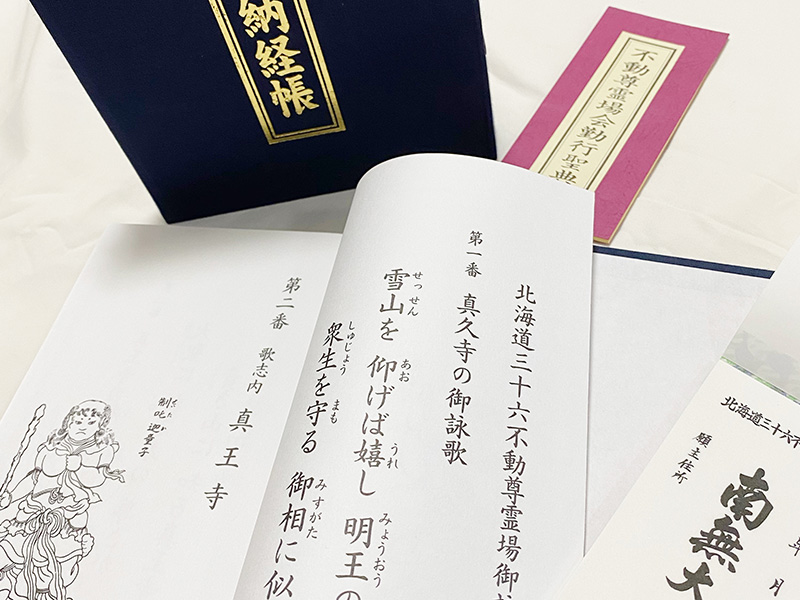 納経帳
不動尊霊場会勤行聖典
北海道三十六不動尊霊場御詠
第一番 真久寺の御詠歌
雪山を 仰げば嬉し 明王の
せっせん あお うれ みょうおう
衆生を守る 御相に似
しゅじょう まも みすがた
第二番 歌志内 真王寺
制吒迦童子
せいたか
北海道三十六不
願主住所
南無大
年 月